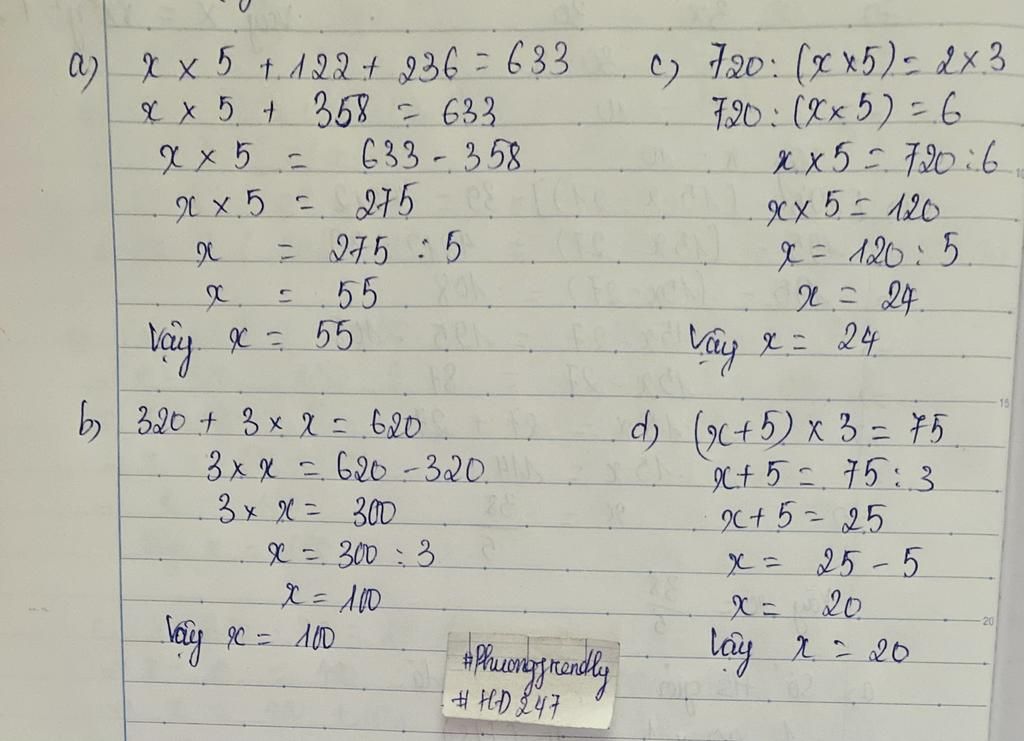 a) x × 5 + 122 + 236 = 633
x × 5 + 358 = 633
x × 5 = 633 - 358
x × 5 = 275
x = 275 : 5
x = 55
Vậy x = 55
b) 320 + 3 × x = 620
3 × x = 620 - 320
3 × x = 300
x = 300 : 3
x = 100
Vậy x = 100
c) 720 : (x × 5) = 2 × 3
720 : (x × 5) = 6
x × 5 = 720 : 6
x × 5 = 120
x = 120 : 5
x = 24
Vậy x = 24
d) (x + 5) × 3 = 75
x + 5 = 75 : 3
x + 5 = 25
x = 25 - 5
x = 20
Vậy x = 20
#Phuongfrendly
#HD247
10
15
20